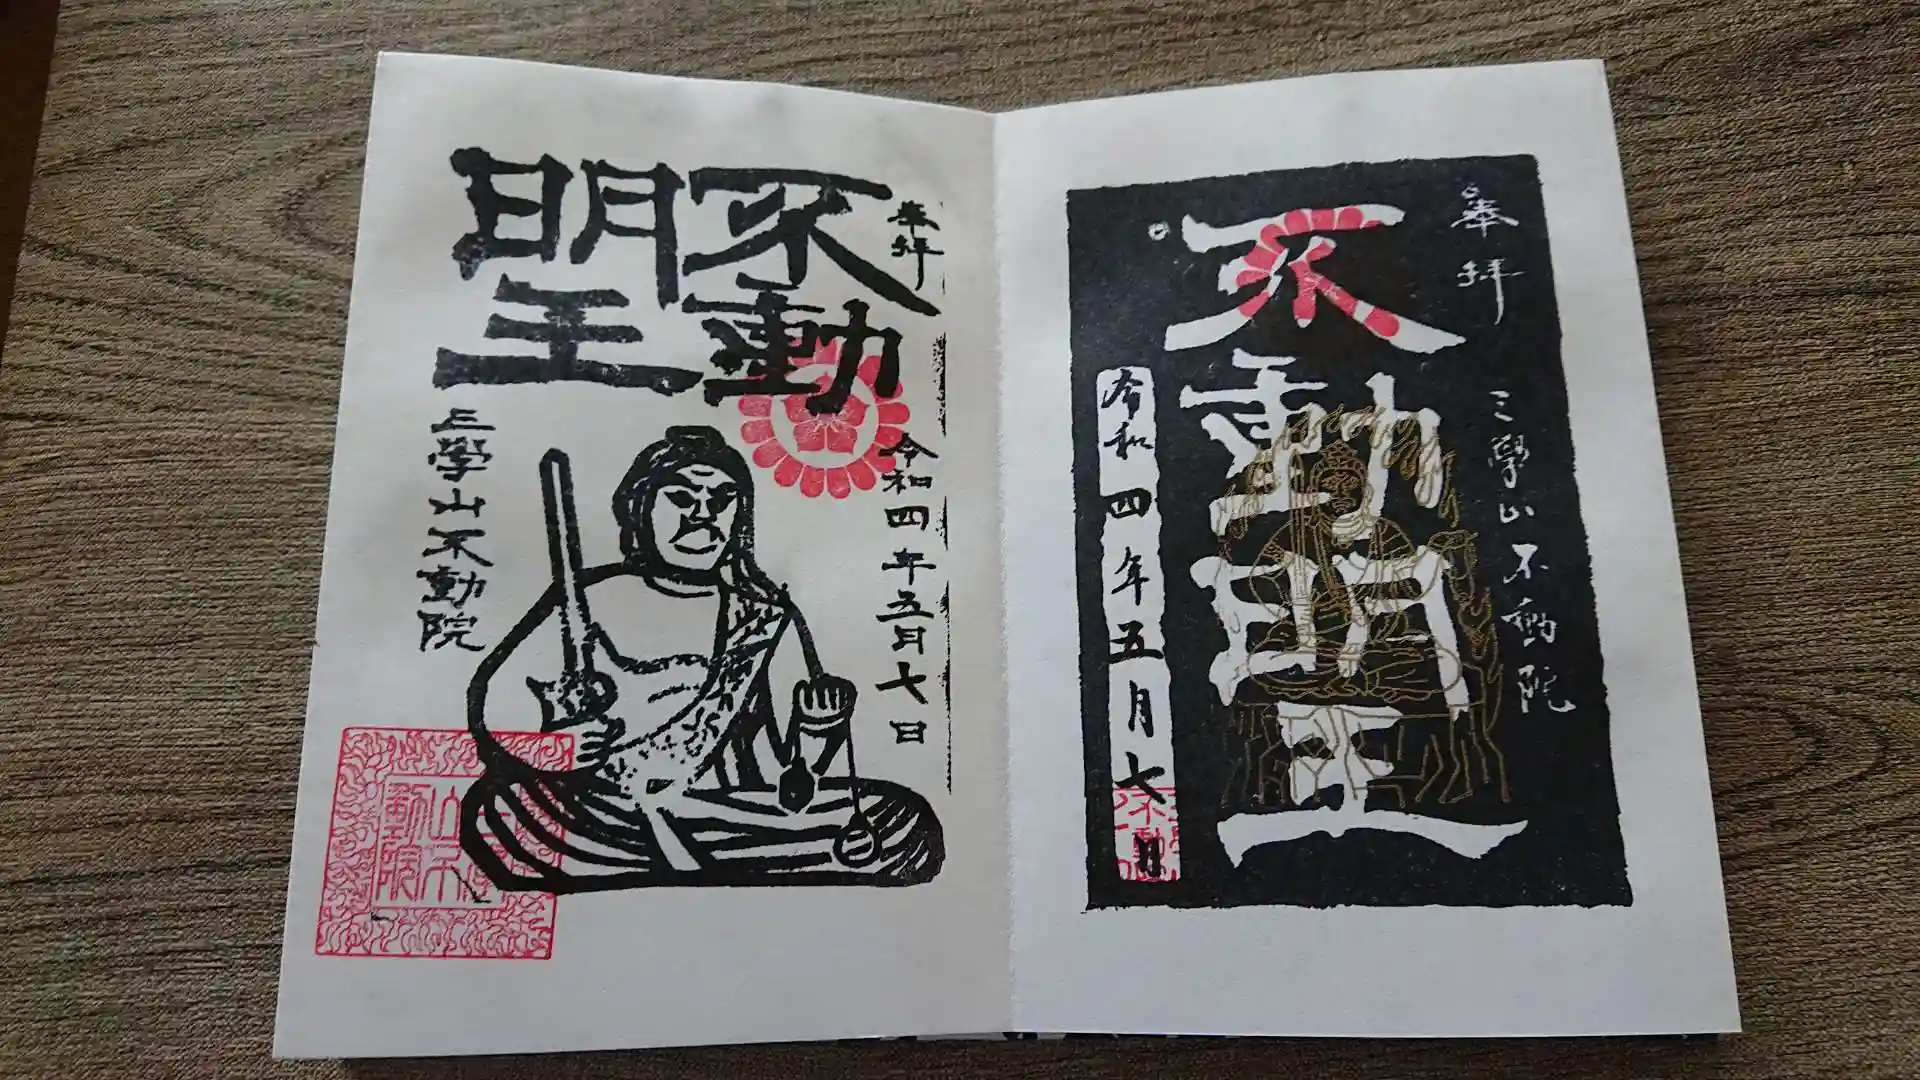 奉拝
三學山不動院
不動明王
令和四年五月七日
不動
奉拝
不動
明王
令和四年五月七日
三學山不動院
山不
動院